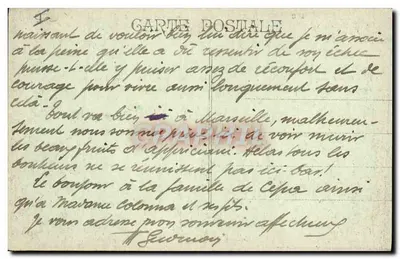 I
CARTE POSTALE
naissant de vouloir bien lui dire que je m'associe
à la peine qu'elle a dû ressentir de son échec
puisse-t-elle y puiser assez de réconfort et de
courage pour vivre aussi longuement sans
cela.
Tout va bien à Marseille, malheureu-
sement nous sommes de voir mûrir
les beaux fruits d'appriciani. Hélas tous les
bonheurs ne se réunissent pas ici-bas!
Le bonjour à la famille de Cepia ainsi
qu'à Madame Colonna et ses fils.
Je vous adresse mon souvenir affectueux